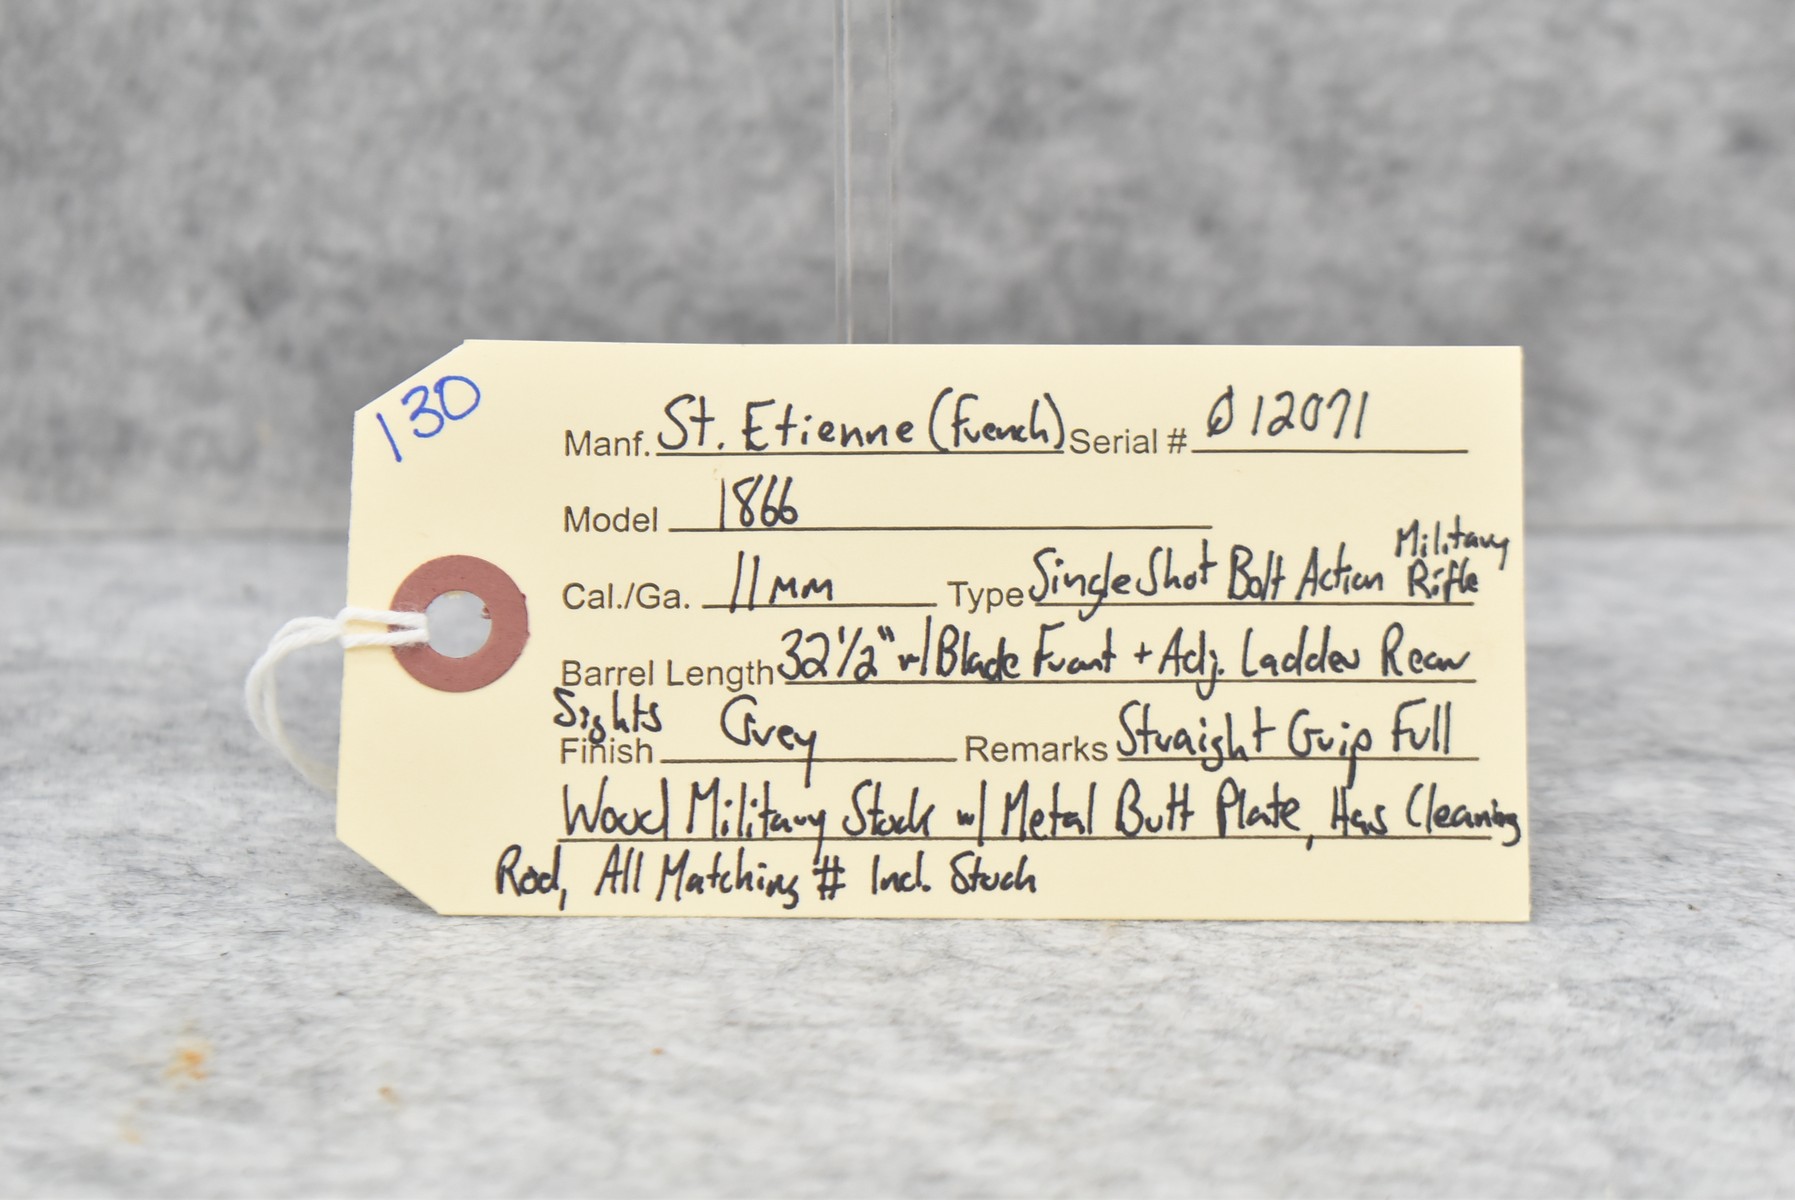 130
Manf. St. Etienne (French) Serial # Ø12071
Model 1866
Cal./Ga. 11mm Type Single Shot Bolt Action Military Rifle
Barrel Length 32 1/2" w/ Blade Front + Adj. Ladder Rear
Sights
Finish Grey Remarks Straight Grip Full
Wood Military Stock w/ Metal Butt Plate, Has Cleaning
Rod, All Matching # Incl. Stock